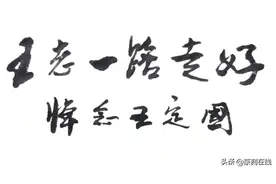 王老一路走好
悼念王定國
头条@原列在线